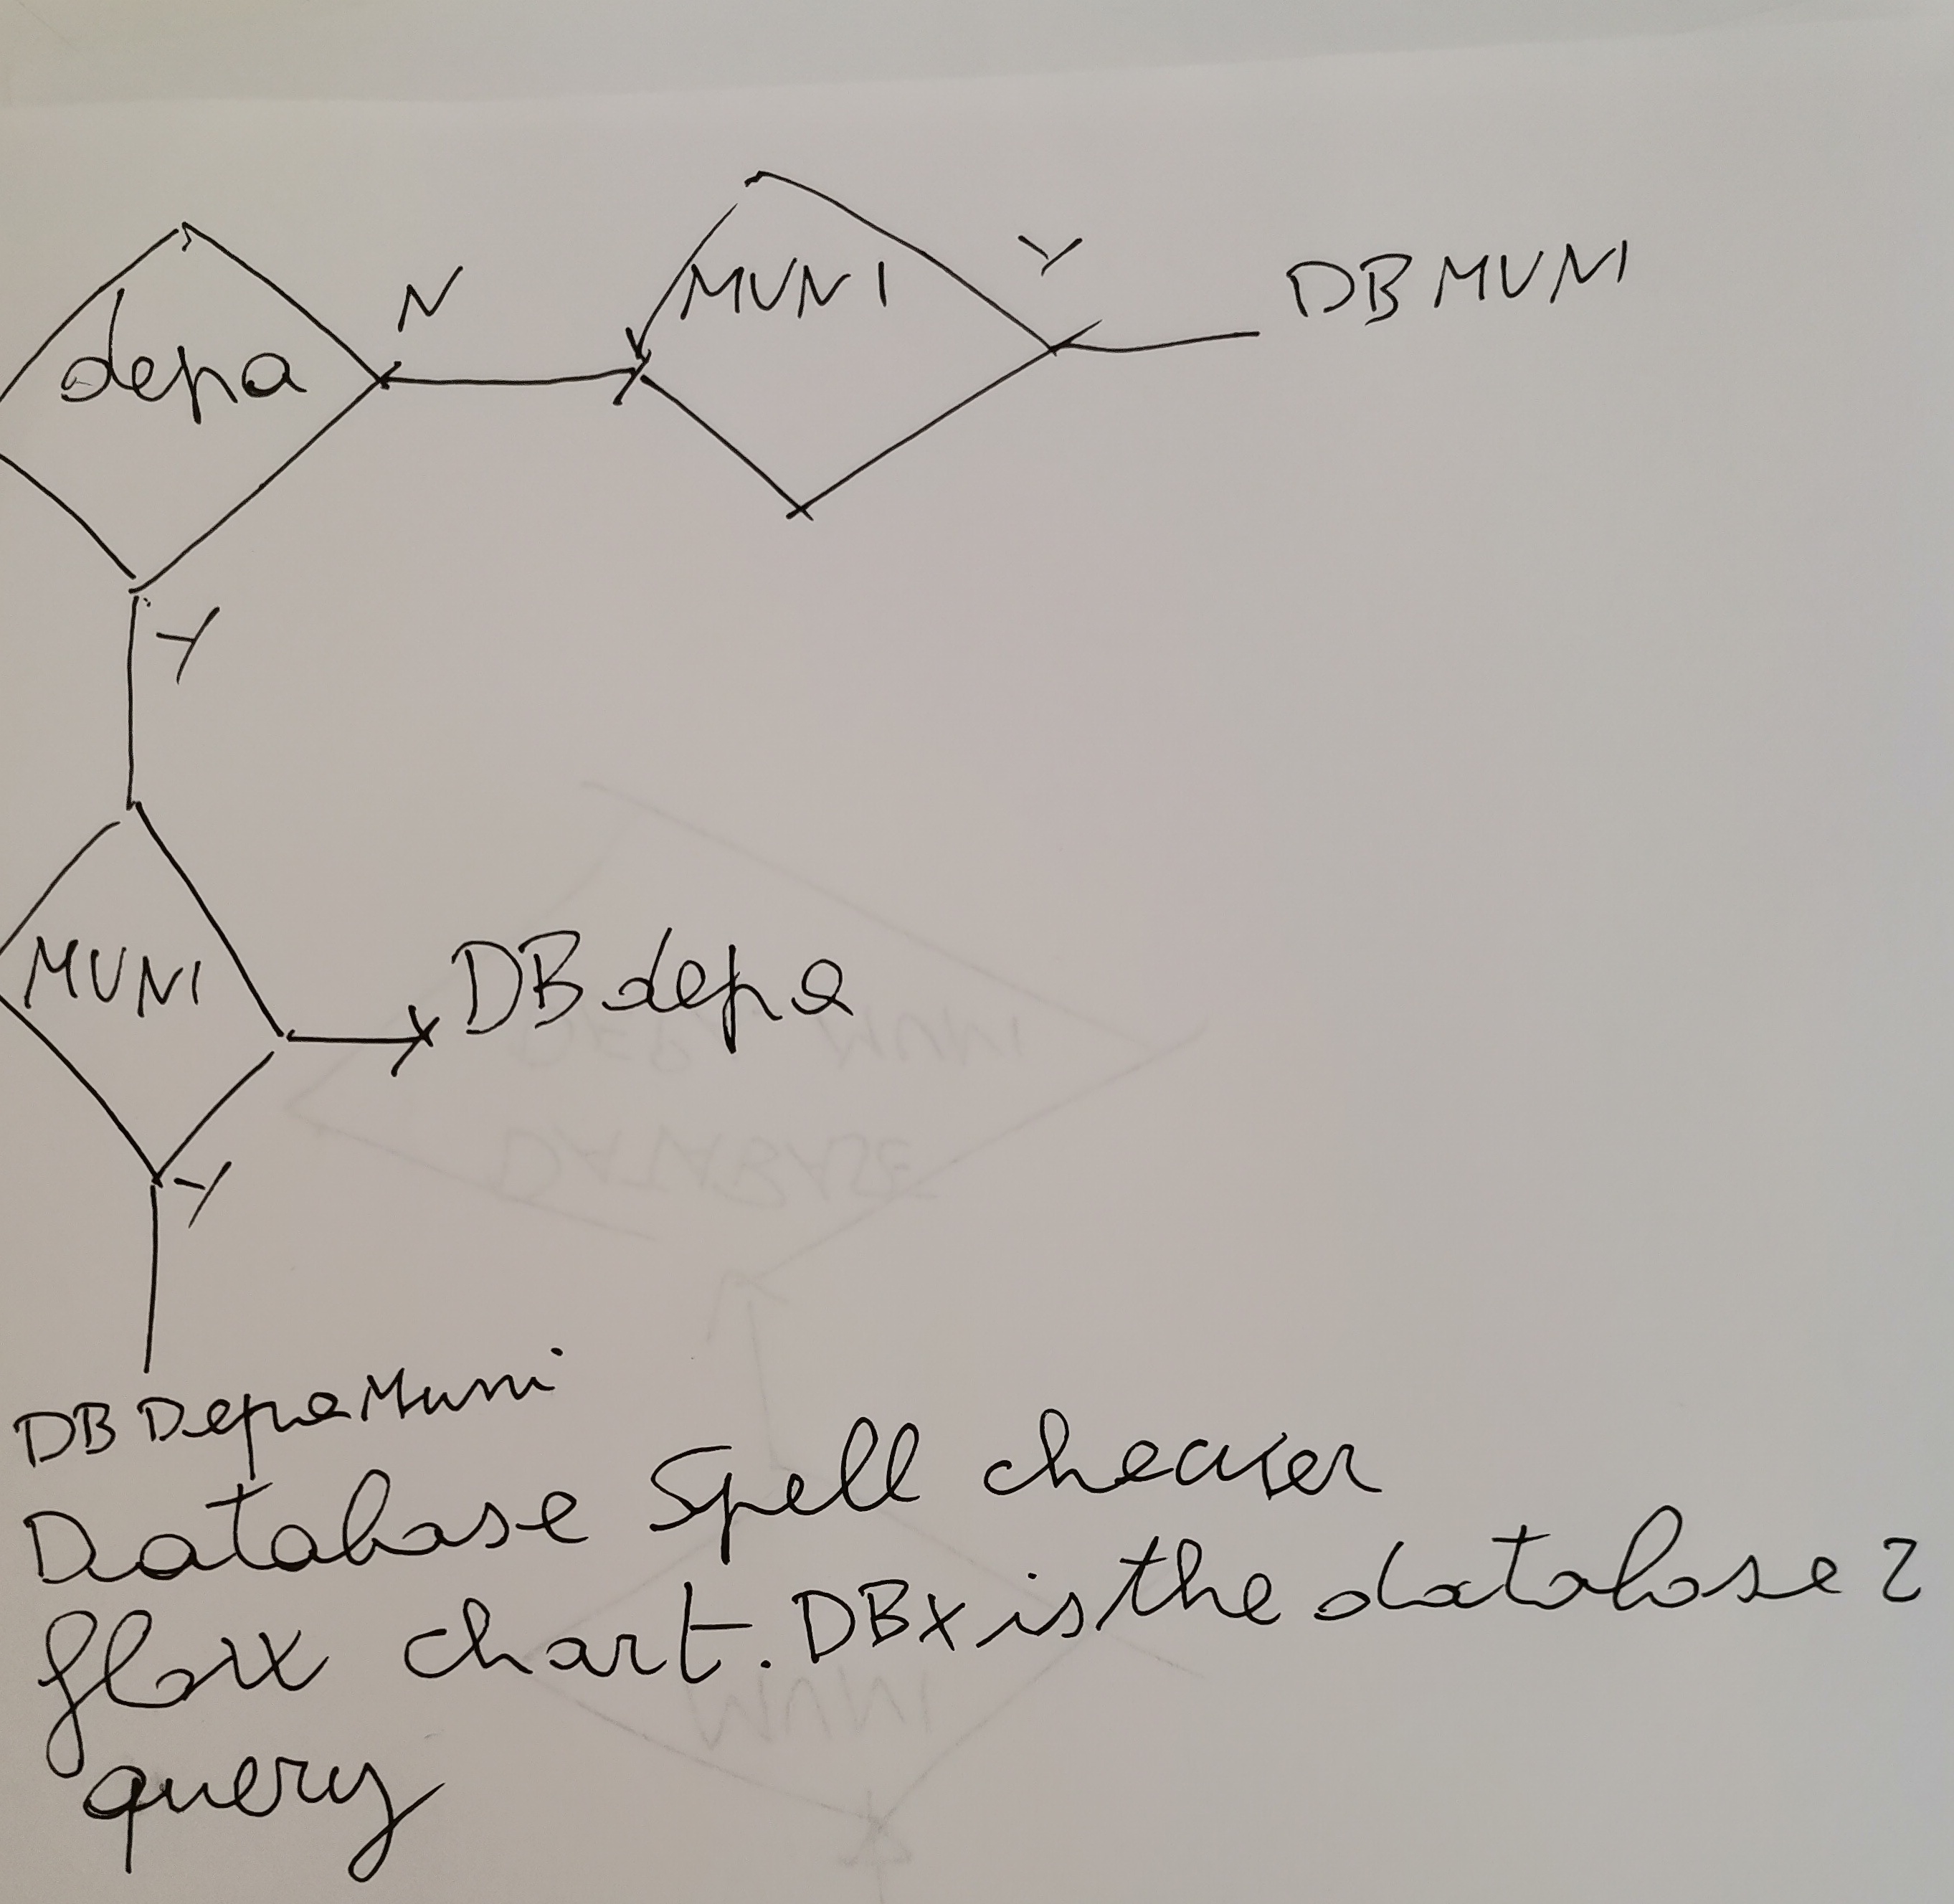 N
Y
DB MUNI
MUNI
depa
Y
MUNI
DB depa
Y
DB DepaMuni
Database Spell checker
flow chart. DBx is the database 2
query